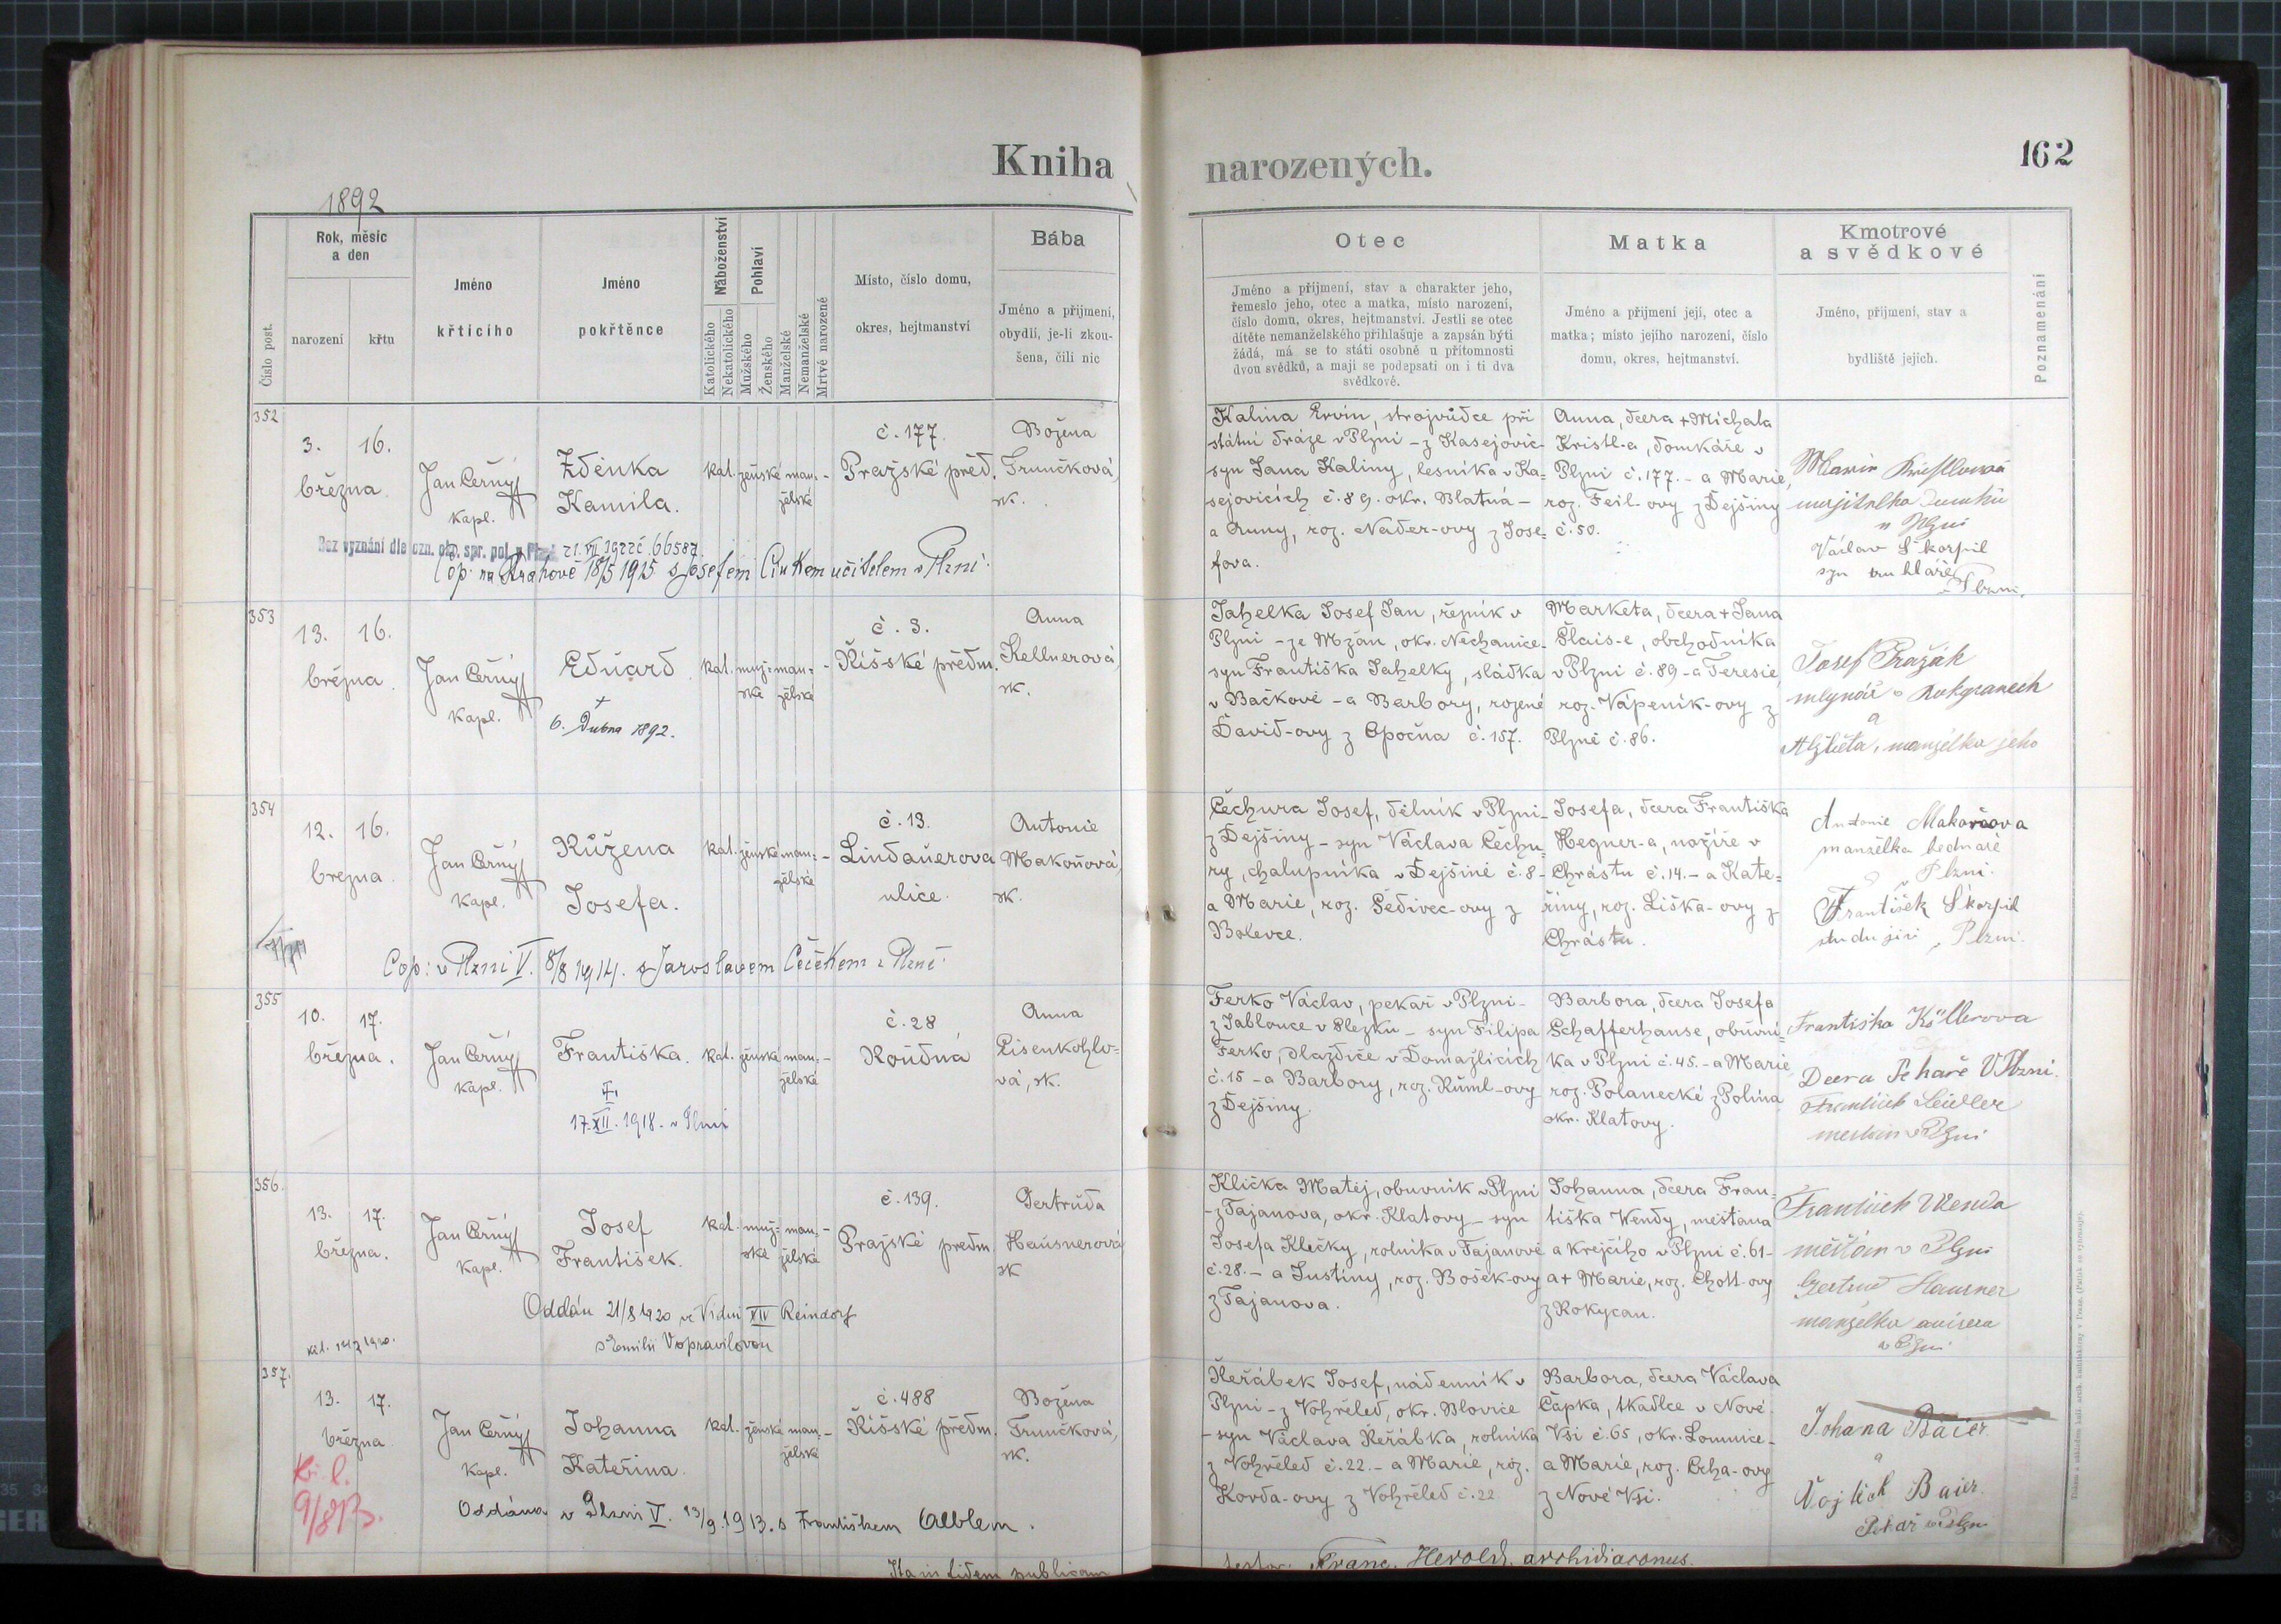 Kniha
narozených.
162
1892
Číslo post.
Rok, měsíc
a den
narození
křtu
Jméno
křticího
Jméno
pokřtěnce
Náboženství
Katolického
Nekatolického
Pohlaví
Mužského
Ženského
Manželské
Nemanželské
Mrtvě narozené
Místo, číslo domu,
okres, hejtmanství
Bába
Jméno a příjmení,
obydlí, je-li zkou-
šena, čili nic
Otec
Jméno a příjmení, stav a charakter jeho,
řemeslo jeho, otec a matka, místo narození,
číslo domu, okres, hejtmanství. Jestli se otec
dítěte nemanželského přihlašuje a zapsán býti
žádá, má se to státi osobně u přítomnosti
dvou svědků, a mají se podepsati on i ti dva
svědkové.
Matka
Jméno a příjmení její, otec a
matka; místo jejího narození, číslo
domu, okres, hejtmanství.
Kmotrové
a svědkové
Jméno, příjmení, stav a
bydliště jejich.
Poznamenání
352
3.
16.
března.
Jan Černý
kapl.
Zdeňka
Kamila.
kat.
ženské
man-
želské
č. 177.
Pražské před.
Božena
Trunčková,
zk.
Kalina Ervín, strojvůdce při
státní dráze v Plzni – z Kasejovic-
syn Jana Kaliny, lesníka v Ka=
sejovicích č. 89. okr. Blatná –
a Anny, roz. Nader-ovy z Jose=
fova.
Anna, dcera + Michala
Kristl-a, domkáře v
Plzni č. 177. – a Marie,
roz. Feil-ovy z Dejšiny
č. 50.
majitelka domku
v Plzni
Václav Škorpil
syn truhláře
v Plzni.
Bez vyznání dle ozn. okr. spr. pol. v Plzni 21. VII 1922 č. 66587.
Cop: na Prahově 18/5 1915 s Josefem Cinkem učitelem v Plzni.
353
13.
16.
března.
Jan Černý
kapl.
Eduard
+
6. Dubna 1892.
kat.
muž=
ské
man=
želské
č. 3.
Říšské předm.
Anna
Kellnerová,
zk.
Jahelka Josef Jan, řezník v
Plzni – ze Mžan, okr. Nechanice-
syn Františka Jahelky, sládka
v Bačkově – a Barbory, rozené
David-ovy z Opočna č. 157.
Marketa, dcera + Jana
Šlais-e, obchodníka
v Plzni č. 89 – a Teresie,
roz. Vápeník-ovy z
Plzně č. 86.
Josef Pražák
mlynář v Rokycanech
a
Alžběta, manželka jeho
354
12.
16.
března.
Jan Černý
kapl.
Růžena
Josefa.
kat.
ženské
man=
želské
č. 13.
Lindauerova
ulice.
Antonie
Makoňová,
zk.
Čechura Josef, dělník v Plzni-
z Dejšiny – syn Václava Čechu=
ry, chalupníka v Dejšině č. 8-
a Marie, roz. Šedivec-ovy z
Bolevce.
Josefa, dcera Františka
Hegner-a, nožíře v
Chrástu č. 14. – a Kate=
řiny, roz. Liška-ovy z
Chrástu.
Antonie Makoňova
manželka bednáře
v Plzni.
František Škorpil
studující v Plzni.
Cop: v Plzni V. 8/8 1914. s Jaroslavem Čečkem z Plzně.
355
10.
17.
března.
Jan Černý
kapl.
Františka.
17. XII. 1918. v Plzni
kat.
ženské
man=
želské
č. 28
Roudná
Anna
Eisenkohlo=
vá, zk.
Ferko Václav, pekař v Plzni-
z Jablonce v Slezku – syn Filipa
Ferko, dlaždiče v Domažlicích
č. 15 – a Barbory, roz. Ruml-ovy
z Dejšiny.
Barbora, dcera Josefa
Schafferhanse, obuvní=
ka v Plzni č. 45. – a Marie,
roz. Polanecké z Polína
okr. Klatovy.
Františka Köllerova
Dcera Pekaře V Plzni.
František Seidler
mešťan v Plzni
356.
13.
17.
března.
Jan Černý
kapl.
Josef
František.
kat.
muž=
ské
man=
želské
č. 139.
Pražské předm.
Gertruda
Hausnerová
zk
Klička Matěj, obuvník v Plzni
– z Tajanova, okr. Klatovy – syn
Josefa Kličky, rolníka v Tajanově
č. 28. – a Justiny, roz. Bošek-ovy
z Tajanova.
Johanna, dcera Fran=
tiška Wendy, mešťana
a krejčího v Plzni č. 61-
a + Marie, roz. Chott-ovy
z Rokycan.
František Wenda
měšťan v Plzni
Gertrud Hausner
manželka
v Plzni
Oddán 21/8 1920 ve Vídni XIV Reindorf
s Emilií Vopravilovou
357.
13.
17.
března.
Jan Černý
kapl.
Johanna
Kateřina.
kat.
ženské
man=
želské
č. 488
Říšské předm.
Božena
Trunčková,
zk.
Řeřábek Josef, nádenník v
Plzni – z Vohřeled, okr. Blovice
– syn Václava Řeřábka, rolníka
z Vohřeled č. 22. – a Marie, roz.
Korda-ovy z Vohřeled č. 22
Barbora, dcera Václava
Čapka, tkadlce v Nové
Vsi č. 65, okr. Lomnice-
a Marie, roz. Erha-ovy
z Nové Vsi.
Johana Baier
a
Vojtěch Baier.
Pekař v Plzni
Oddána v Plzni V. 13/9. 1913. s Františkem Alblem.
Ita in fidem publicam
testor: Franc. Herold, archidiaconus.